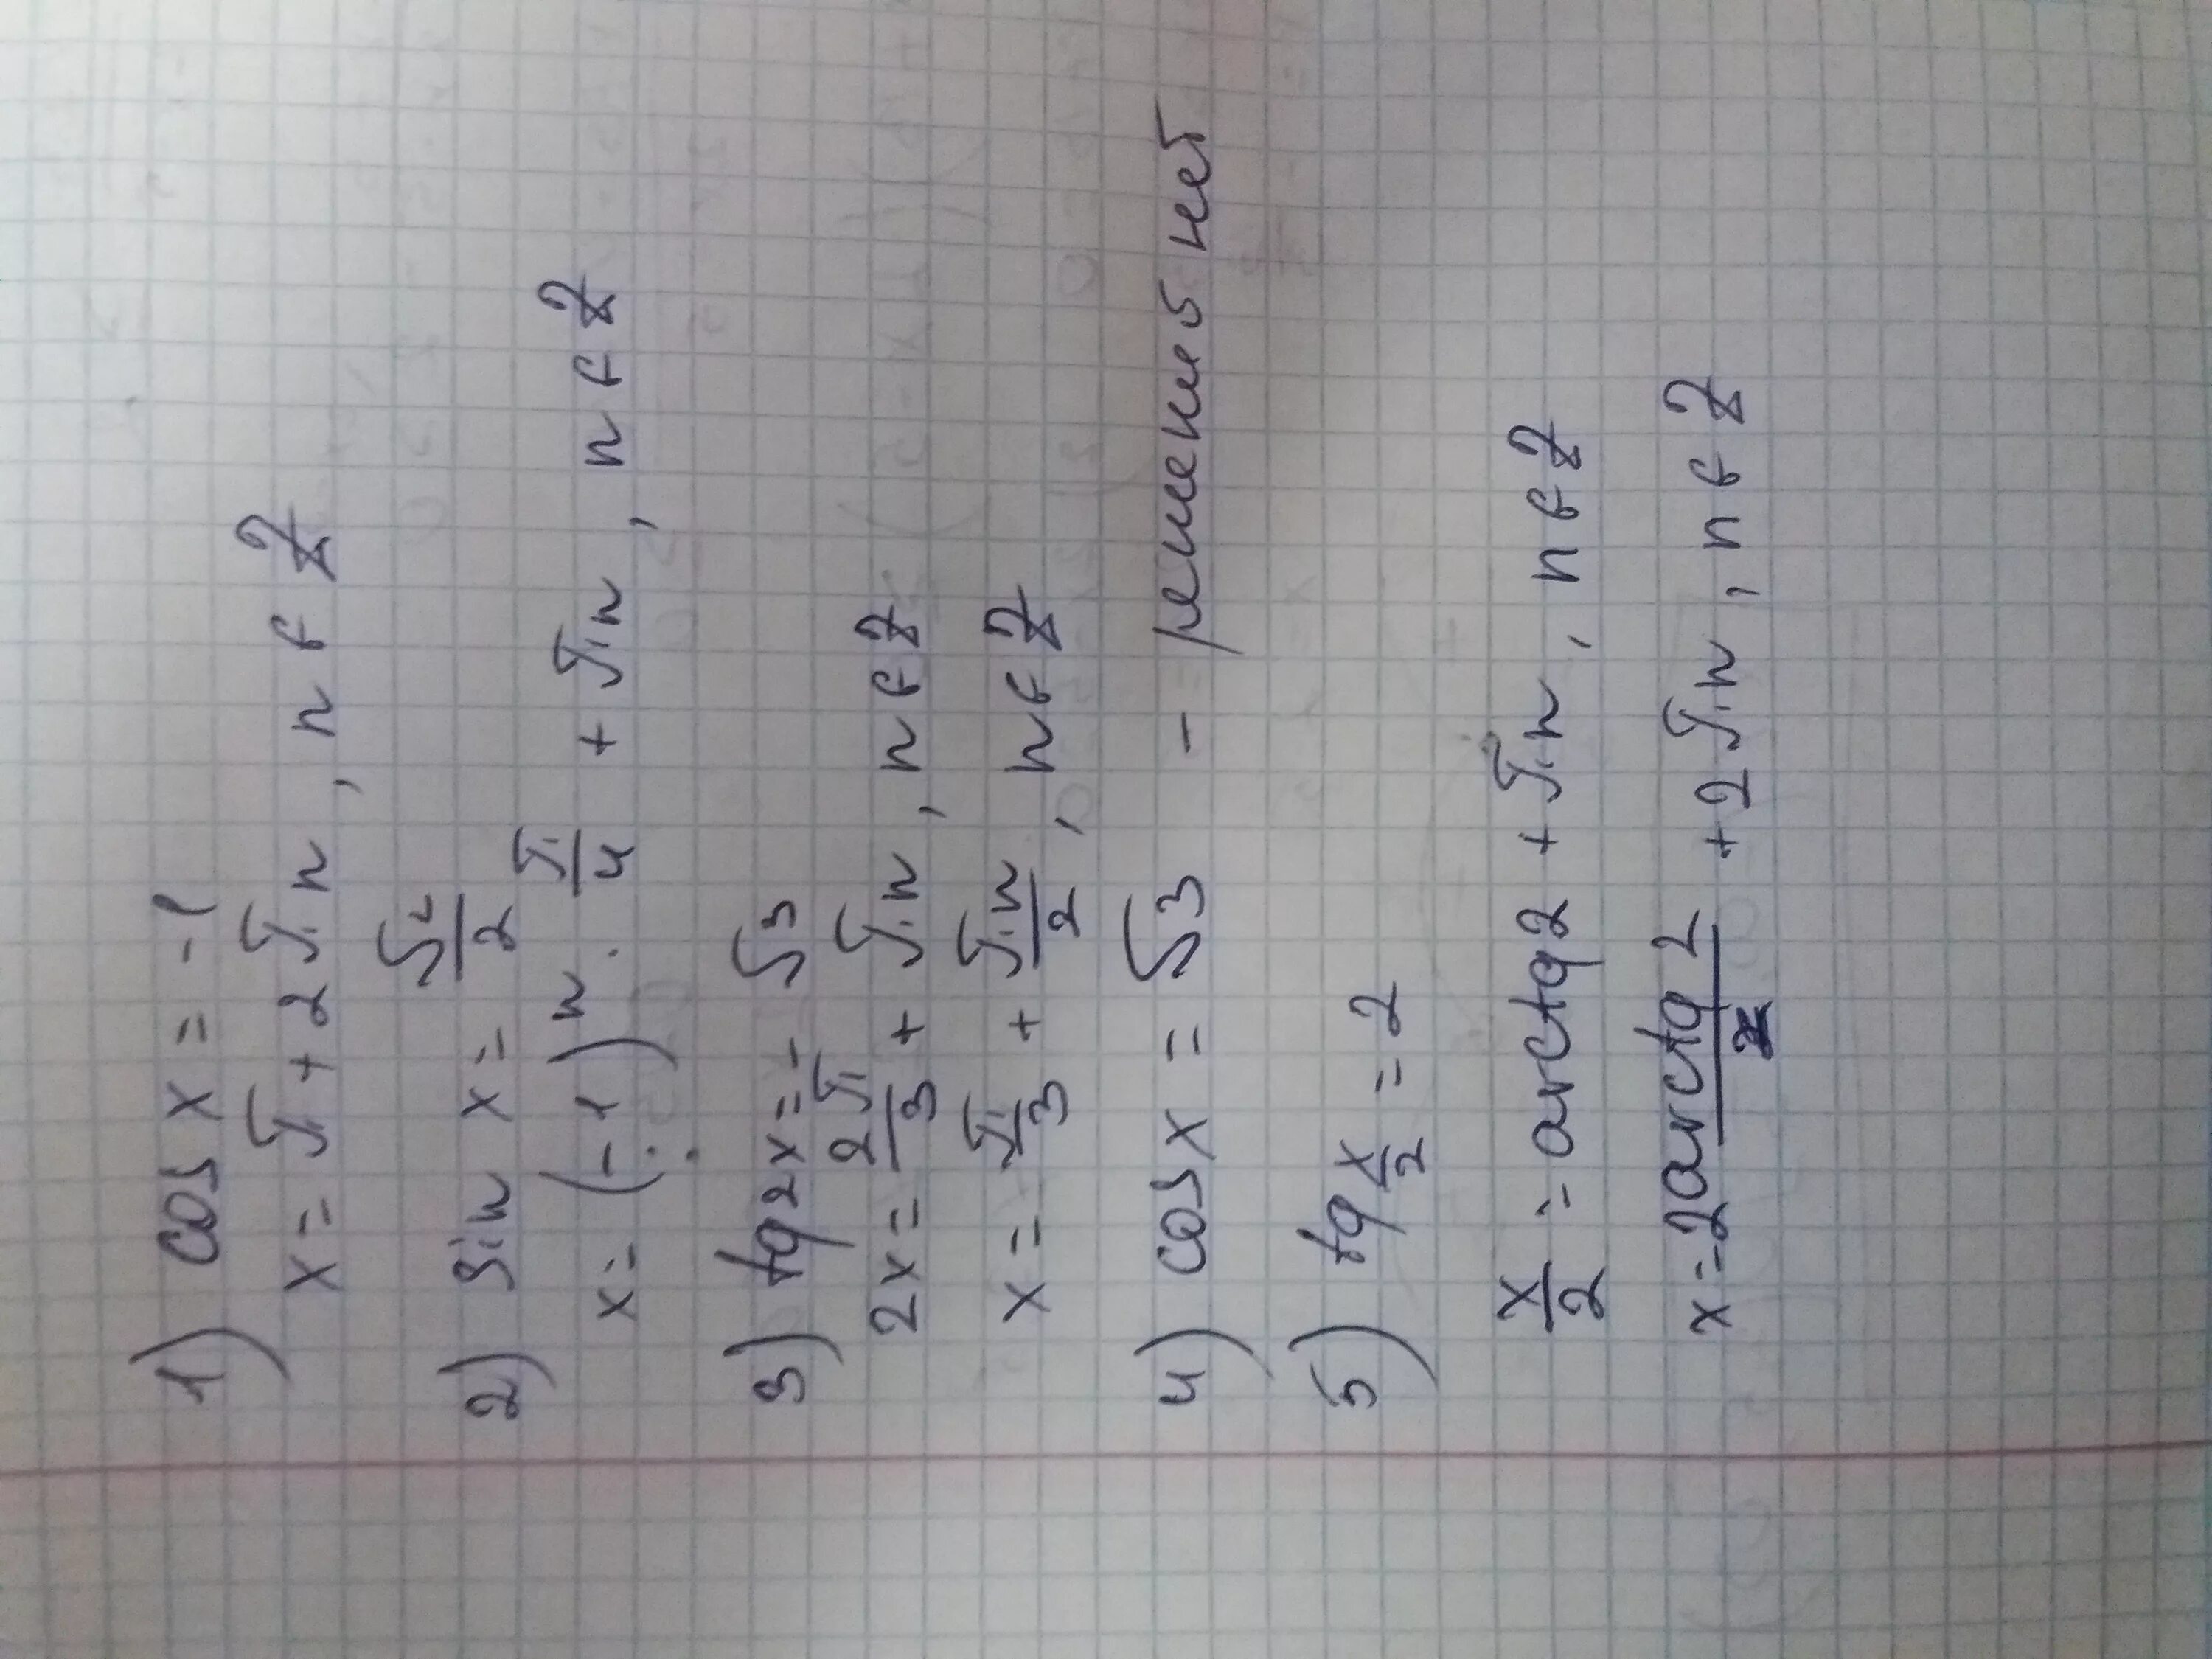 1) cos x = -1
x = π + 2πn, n ∈ Z
2) sin x = √2/2
x = (-1)ⁿ · π/4 + πn, n ∈ Z
3) tg 2x = -√3
2x = 2π/3 + πn, n ∈ Z
x = π/3 + πn/2, n ∈ Z
4) cos x = √3 - решений нет
5) tg x/2 = 2
x/2 = arctg 2 + πn, n ∈ Z
x = 2arctg 2 + 2πn, n ∈ Z